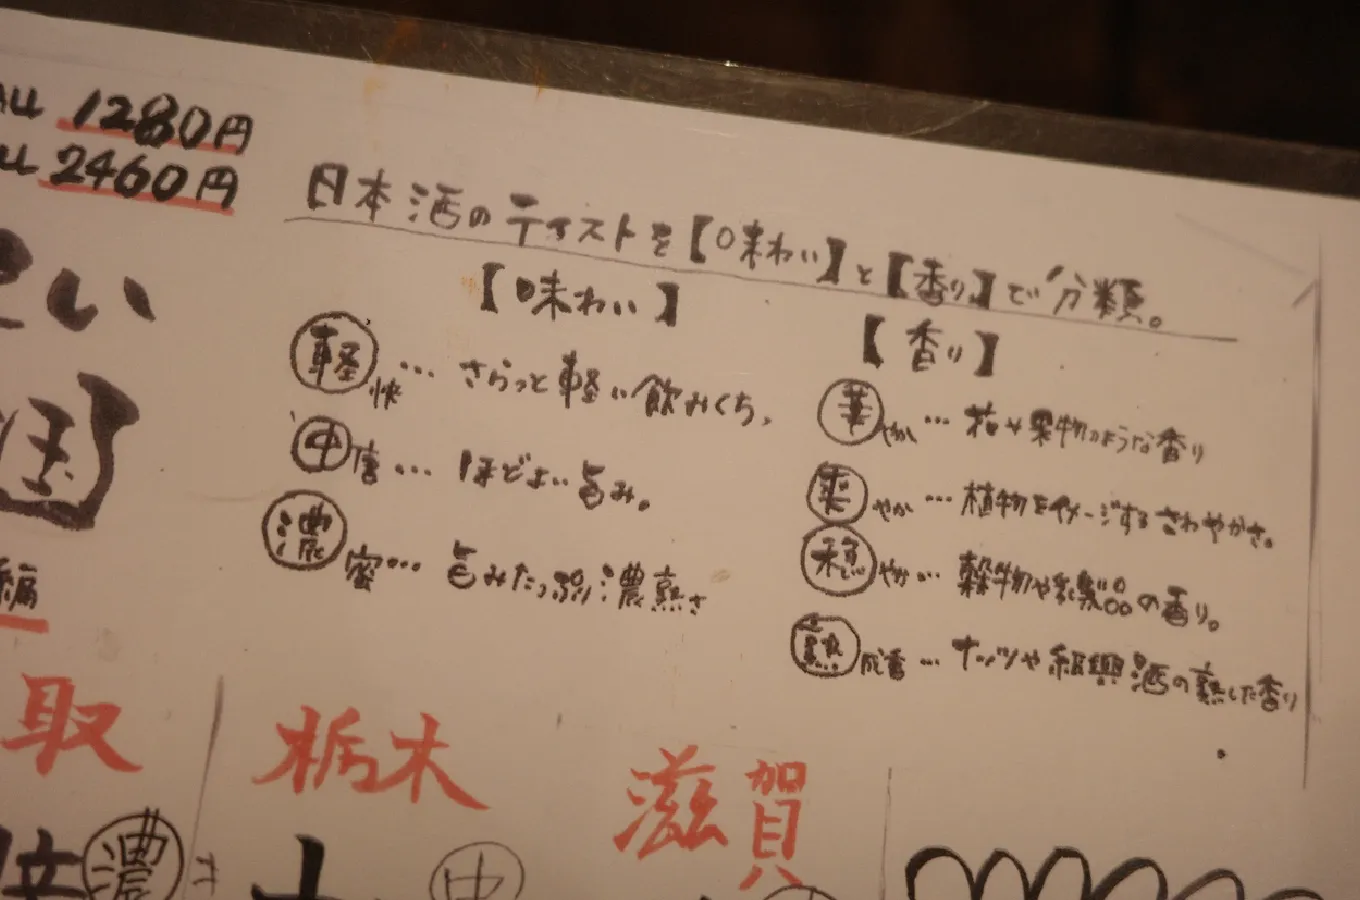 1280円
2460円
日本酒のテイストを【味わい】と【香り】で分類。
【味わい】
軽快… さらっと軽い飲みくち、
中庸… ほどよい旨み。
濃密… 旨みたっぷり濃熟さ
【香り】
華やか… 花や果物のような香り
爽やか… 植物をイメージするさわやかさ。
穏やか… 穀物や乳製品の香り。
熟成香… ナッツや紹興酒の熟した香り
取
栃木
滋賀
濃
中